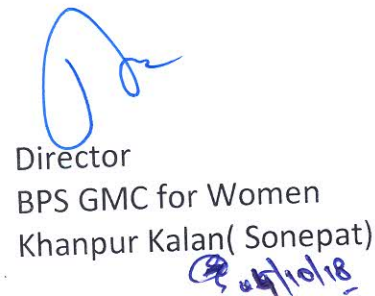 Director
BPS GMC for Women
Khanpur Kalan( Sonepat)